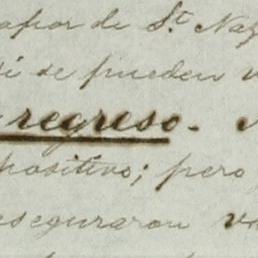 vapor de St. Naz
di se pueden v
regreso-
positivo; pero
aseguraron va